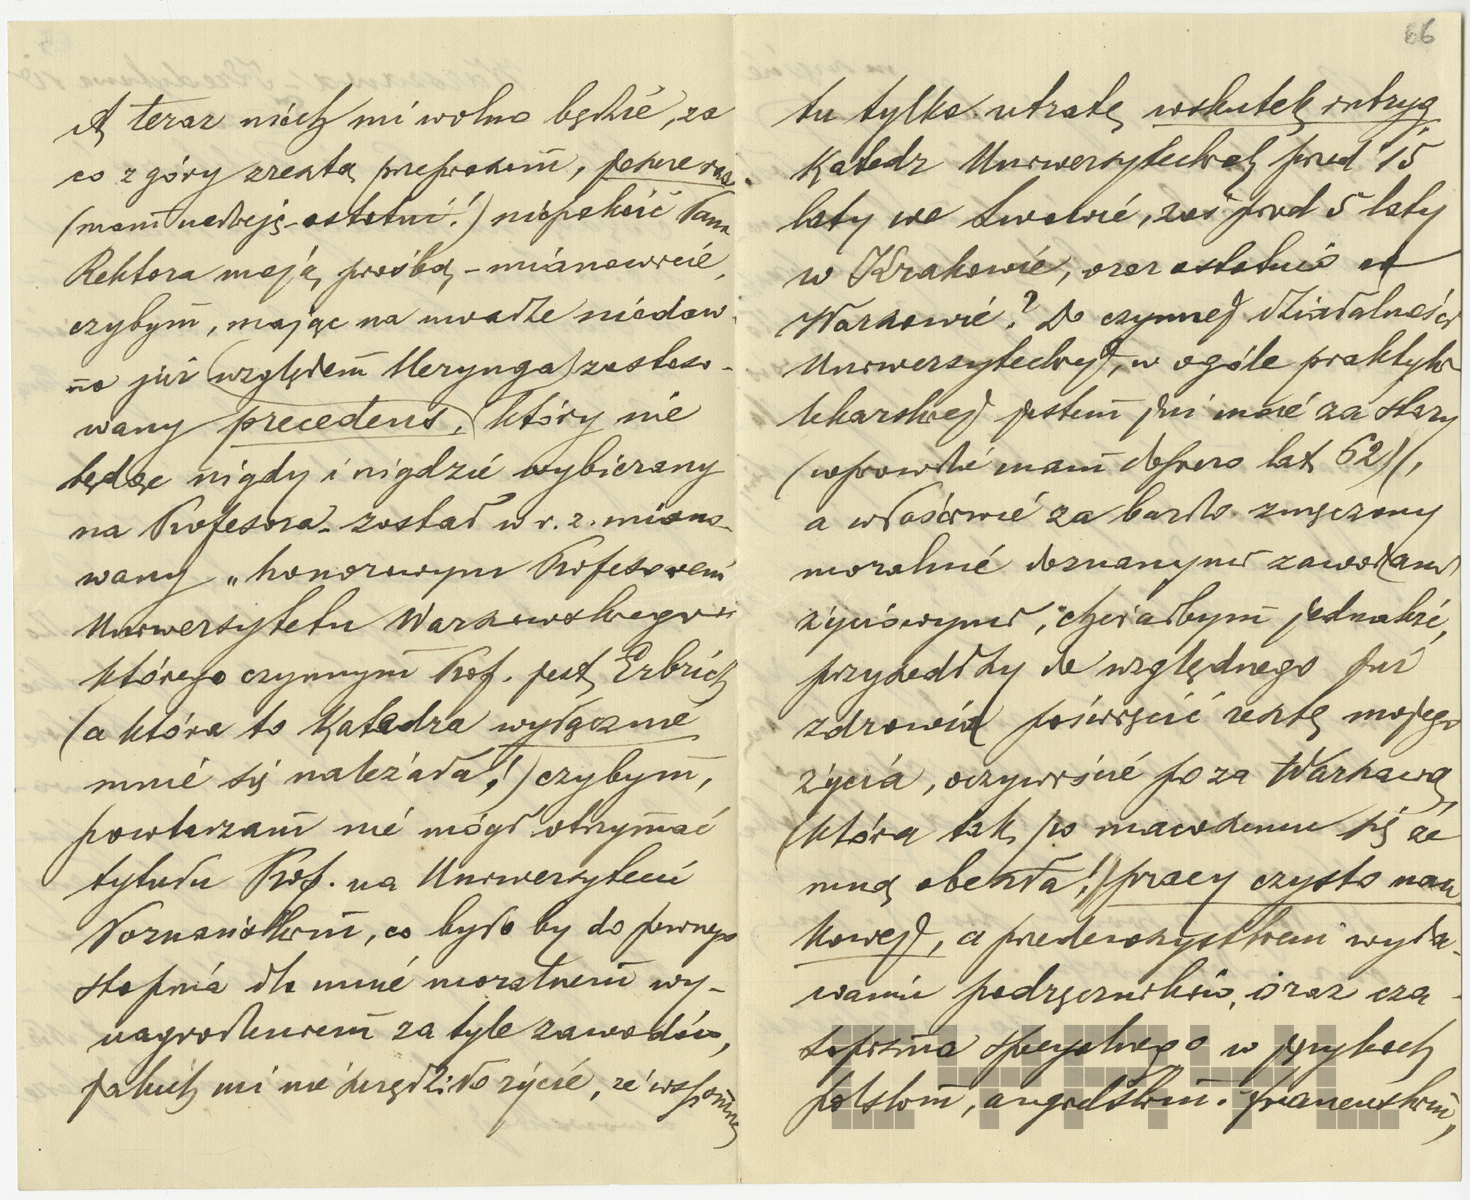 A teraz niech mi wolno będzie, za
co z góry zresztą przepraszam, jeszcze raz
(mam nadzieję - ostatni!) niepokoić Pana
Rektora moją prośbą, - mianowicie,
czybym, mając na uwadze niedaw-
no już (względem Merynga) zastoso-
wany precedens, który nie
będąc nigdy i nigdzie wybierany
na Profesora - został w r. z. miano-
wany „honorowym Profesorem
Uniwersytetu Warszawskiego
którego czynnym Prof. jest Erbrich
(a która to Katedra wyłącznie
mnie się należała!) czybym,
powtarzam nie mógł otrzymać
tytułu Prof. na Uniwersytecie
Poznańskim, co było by do pewnego
stopnia dla mnie moralnem wy-
nagrodzeniem za tyle zawodów,
jakich mi nie szczędziło życie, że wspomnę
86
tu tylko utratę wskutek intryg
Katedr Uniwersyteckich przed 15
laty we Lwowie, zaś przed 5 laty
w Krakowie, oraz ostatnio
Warszawie? Do czynnej działalności
Uniwersyteckiej, w ogóle praktyki
lekarskiej jestem już może za stary
(wprawdzie mam dopiero lat 62),
a właściwie za bardzo zmęczony
moralnie doznanymi zawodami
życiowymi, chciałbym jednakże,
przyszedłszy do względnego już
zdrowia poświęcić resztę mojego
życia, oczywiście poza Warszawą,
(która tak po macoszemu się ze
mną obeszła!) pracy czysto nau-
kowej, a przedewszystkiem wyda-
waniu podręczników, oraz cza-
sopisma specyalnego w językach
polskim, angielskim i francuskim,